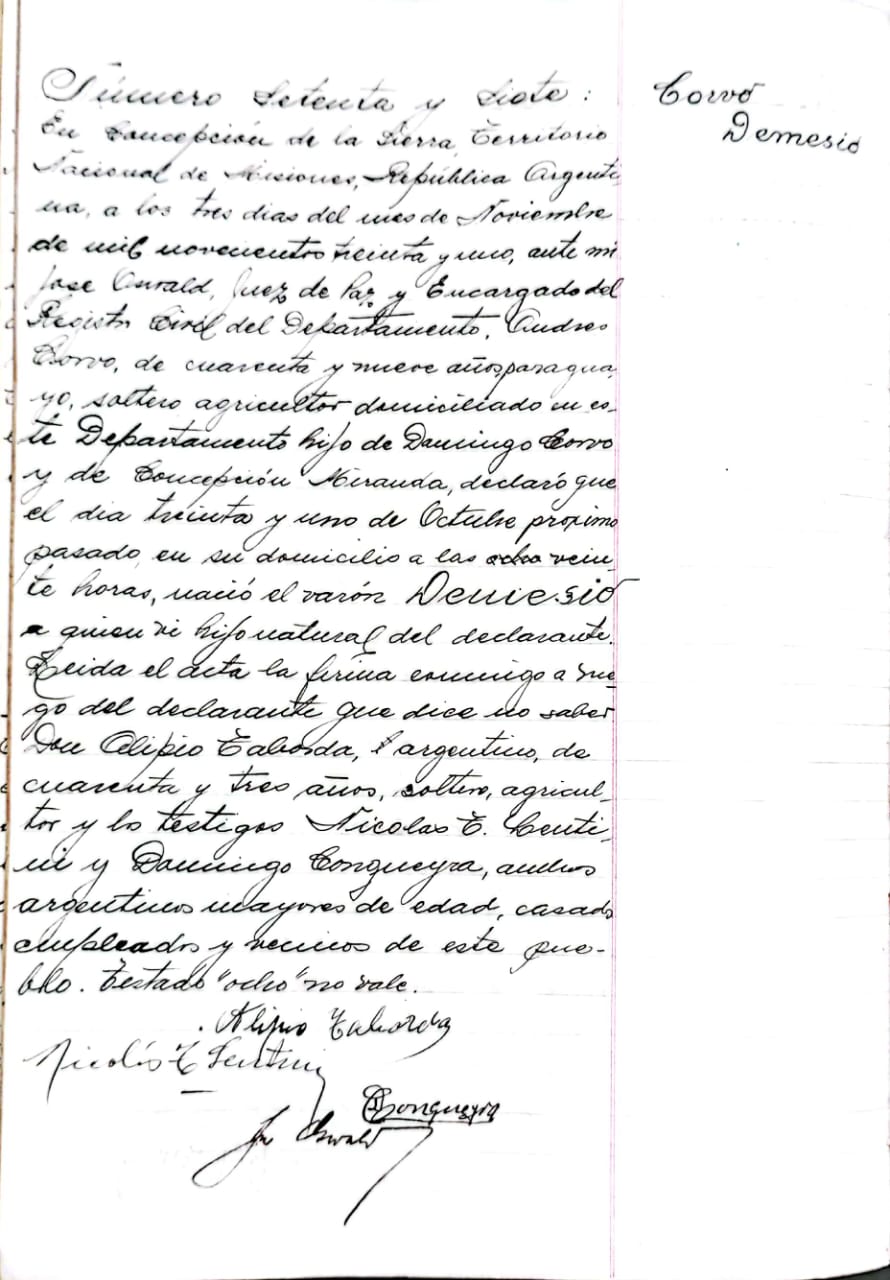 Número Setenta y Siete:
Corvo
Demesio
En Concepción de la Sierra, Territorio
Nacional de Misiones, República Argenti-
na, a los tres dias del mes de Noviembre
de mil novecientos treinta y uno, ante mi
Jose Oswald, Juez de Paz y Encargado del
Registro Civil del Departamento, Andres
Corvo, de cuarenta y nueve años, paragua-
yo, soltero agricultor domiciliado en es-
te Departamento hijo de Domingo Corvo
y de Concepción Miranda, declaró que
el dia treinta y uno de Octubre proximo
pasado, en su domicilio a las ocho vein-
te horas, nació el varón Demesio
a quien vi hijo natural del declarante.
Leida el acta la firma conmigo a rue-
go del declarante que dice no saber
Don Alipio Taborda, argentino, de
cuarenta y tres años, soltero, agricul-
tor y los testigos Nicolas E. Lenti-
ni y Domingo Conqueyra, ambos
argentinos mayores de edad, casados
empleados y vecinos de este pue-
blo. Testado "ocho" no vale.
Alipio Taborda
Nicolás E Lentini
D Conqueyra
Jose Oswald